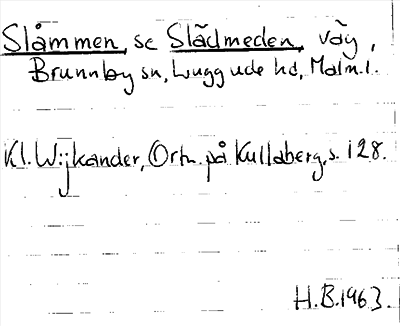 Slåmmen, se Slädmeden, väg,
Brunnby sn, Luggude hd, Malm.l.
Kl. Wijkander, Ortn. på Kullaberg, s. 128.
H.B. 1963.